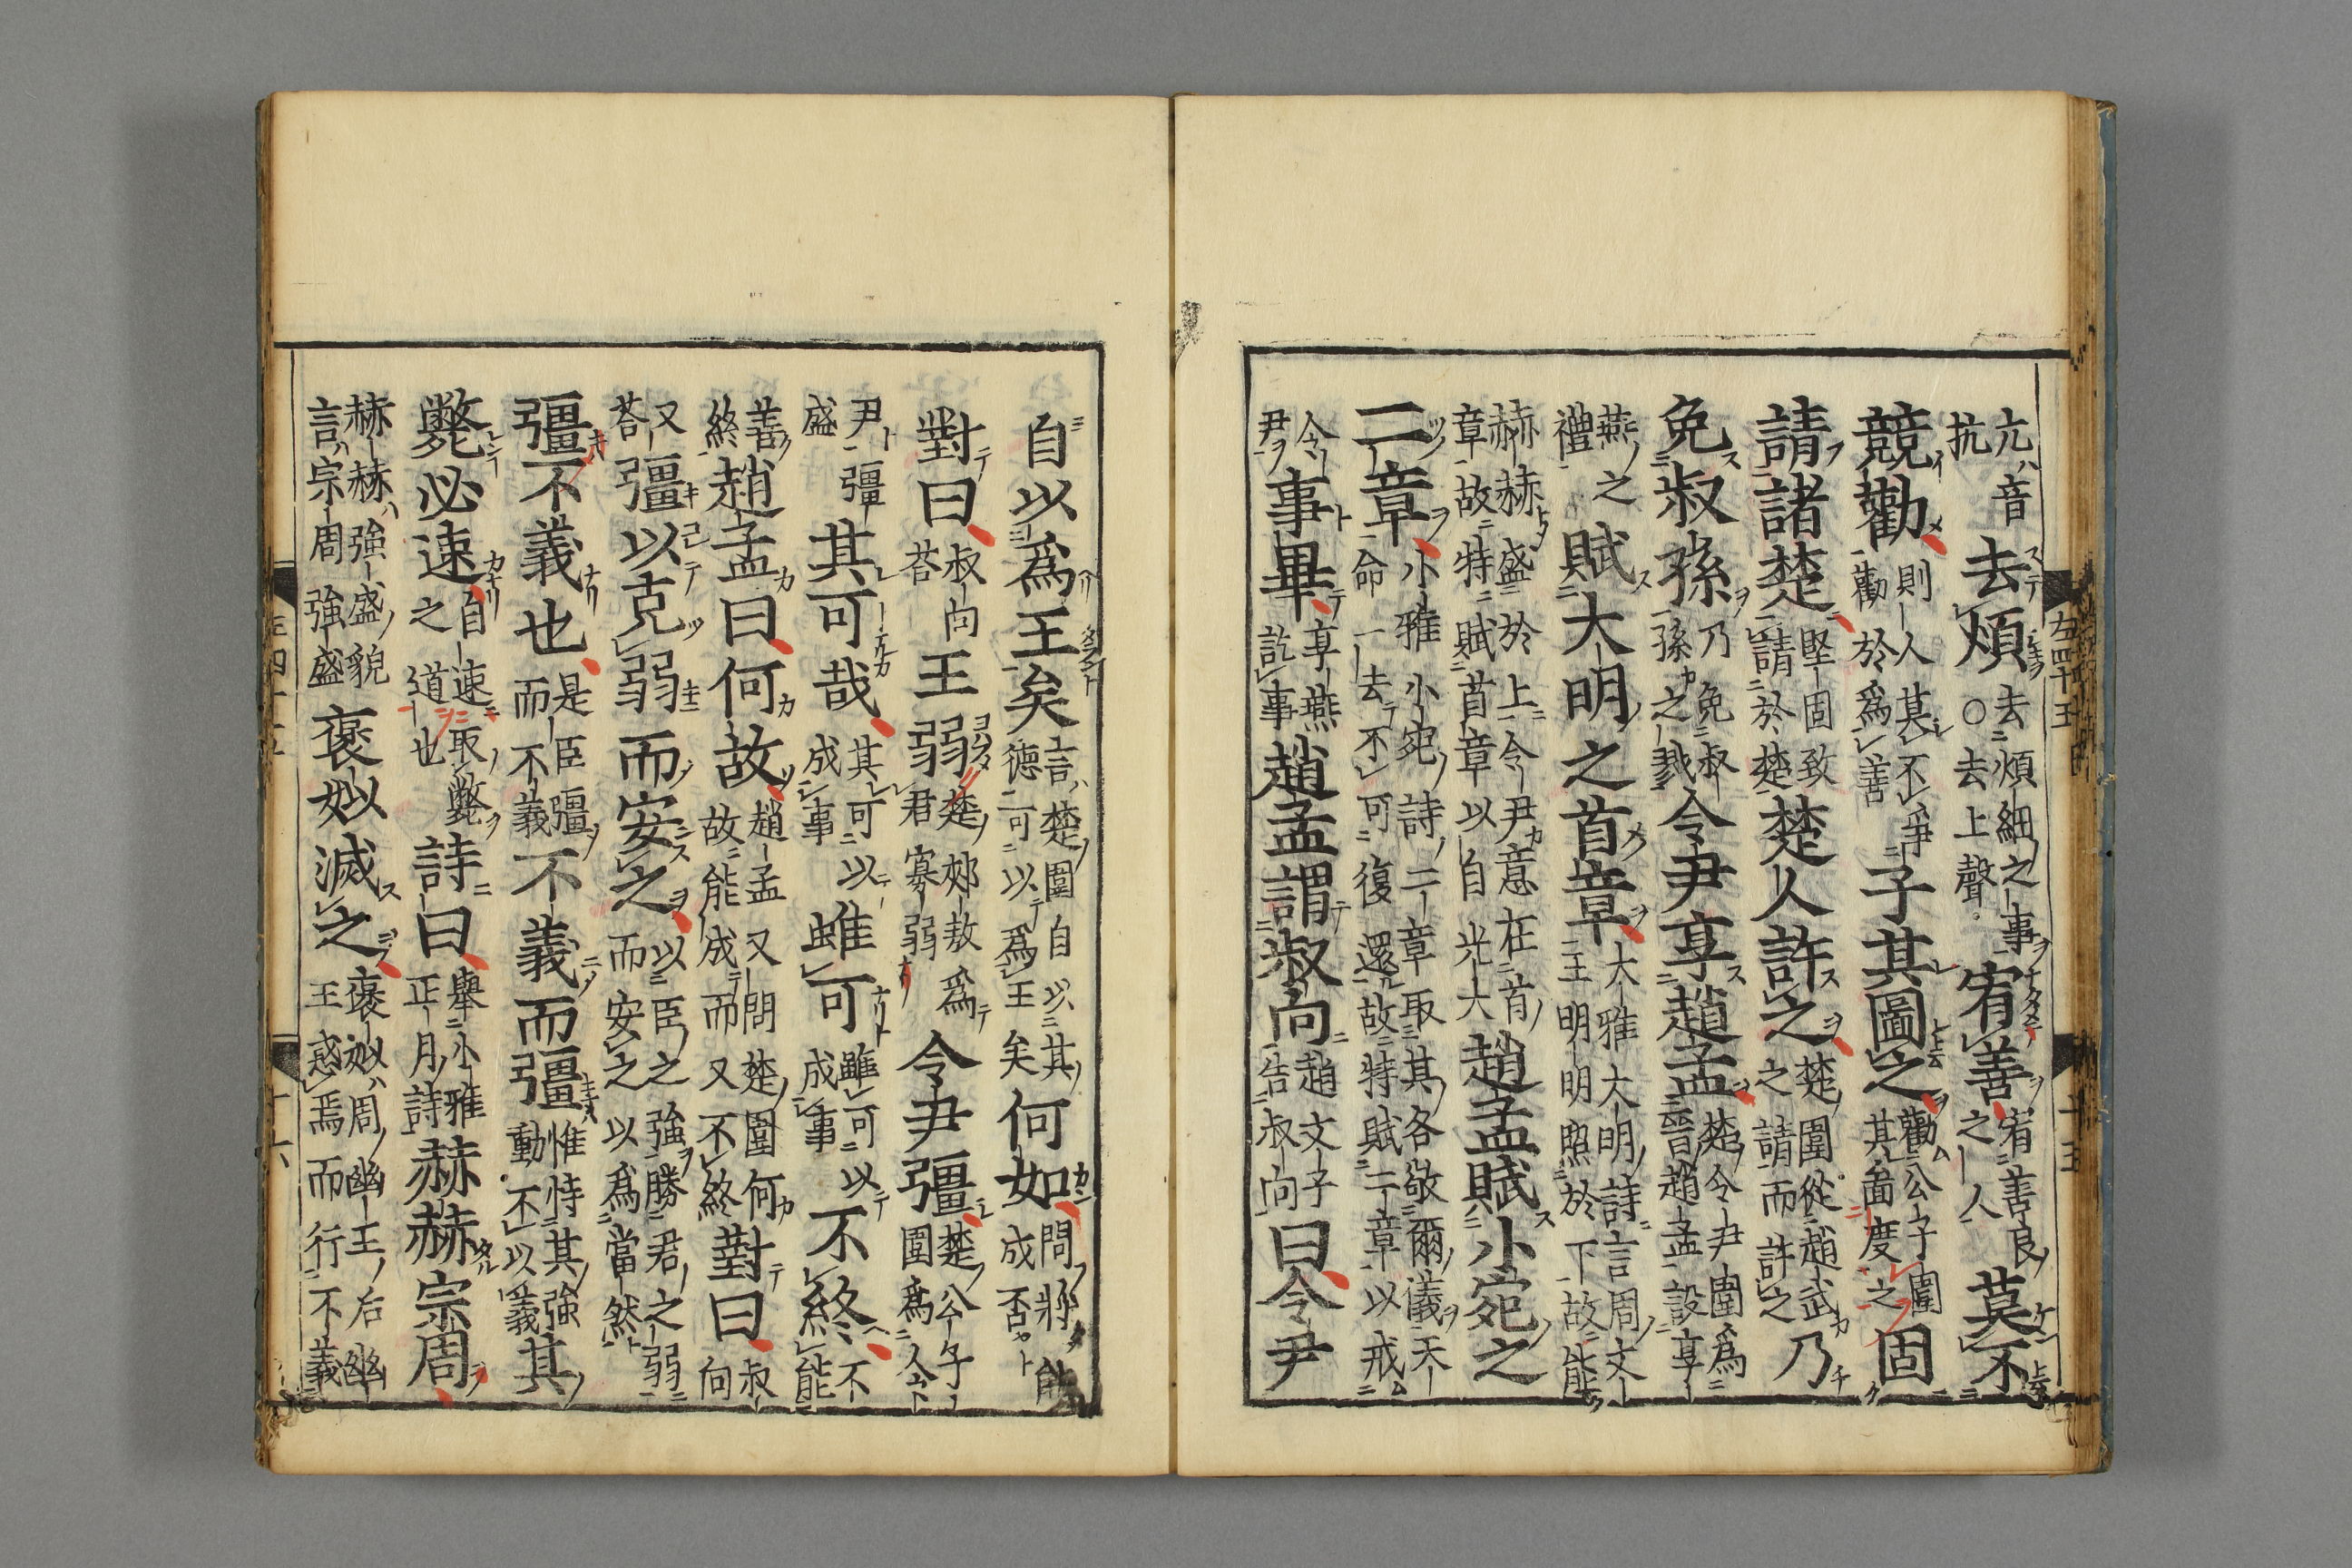 亢音抗去煩去煩細之事○去上聲宥善宥善良之人莫不
競勸則人莫不爭勸於爲善子其圖之勸公子圍其圖度之固
請諸楚堅固致請於楚楚人許之楚圍從趙武之請而許之乃
免叔孫乃免叔孫之戮令尹享趙孟楚令尹圍爲晉趙孟設享
燕之禮賦大明之首章大雅大明詩言周文王明明照於下故能
赫赫盛於上令尹意在首章故特賦首章以自光大趙孟賦小宛之
二章小雅小宛詩二章取其各敬爾儀天命一去不可復還故特賦二章以戒
令尹事畢享燕訖事趙孟謂叔向趙文子告叔向曰令尹
自以爲王矣言楚圍自以其德可以爲王矣何如問將能成否
對曰叔向荅王弱楚郟敖爲君寡弱令尹彊楚公子圍爲令
尹彊盛其可哉其可以成事雖可雖可以成事不終不能
善終趙孟曰何故趙孟又問楚圍何故能成而又不終對曰叔向
又荅彊以克弱而安之以臣之強勝君之弱而安之以爲當然
彊不義也是臣彊而不義不義而彊惟恃其強動不以義其
斃必速自速取斃之道也詩曰舉小雅正月詩赫赫宗周
赫赫強盛貌言宗周強盛襃姒滅之襃姒周幽王后幽王惑焉而行不義